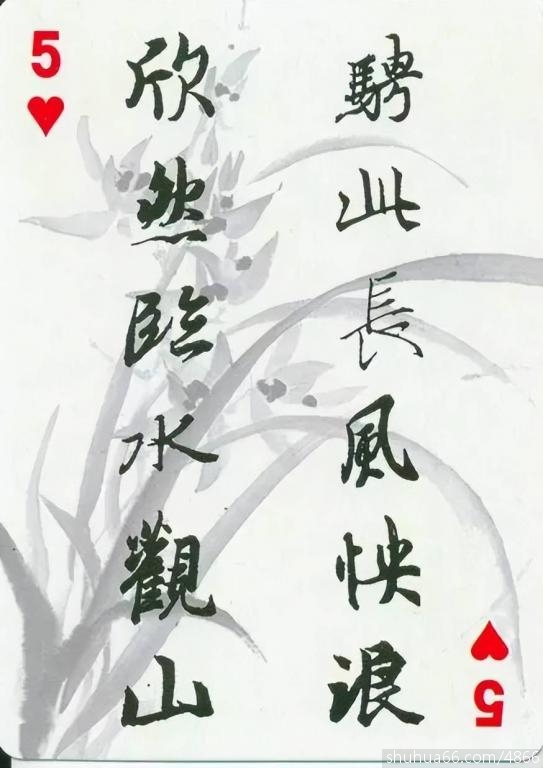 5
騁此長風怏浪
欣然臨水觀山
5
shuhua66.com/4866